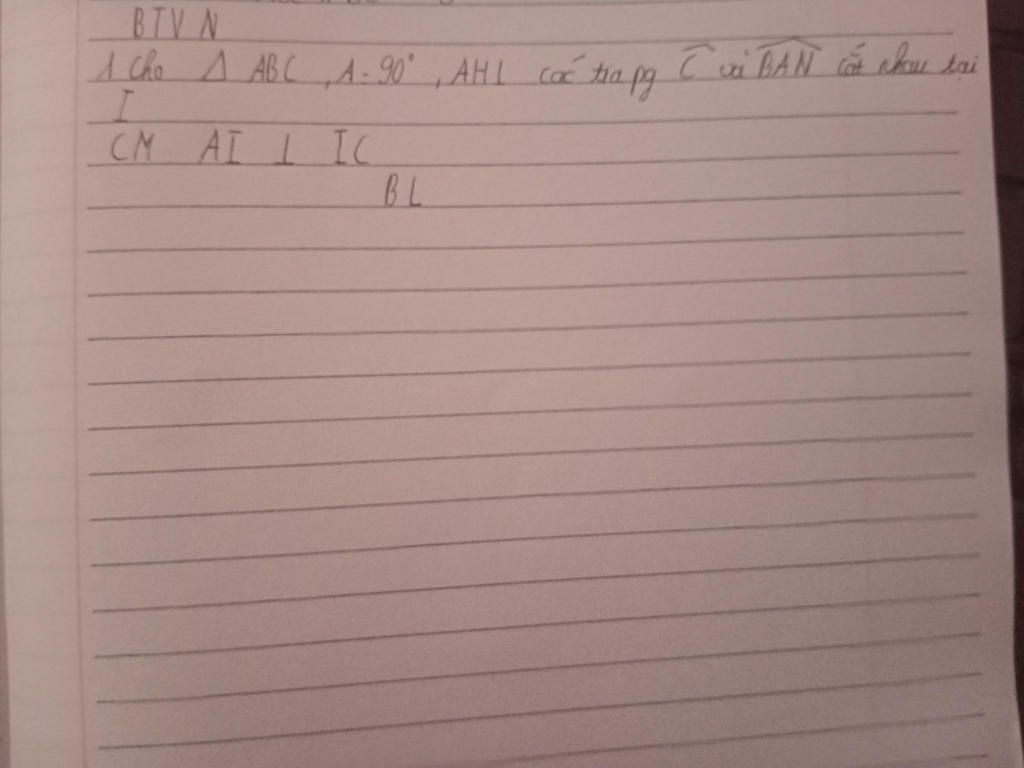 BTVN
1 Cho Δ ABC , A = 90° , AHL các tia pg Ĉ và BAN cắt nhau tại
I
CM AI ⊥ IC
BL